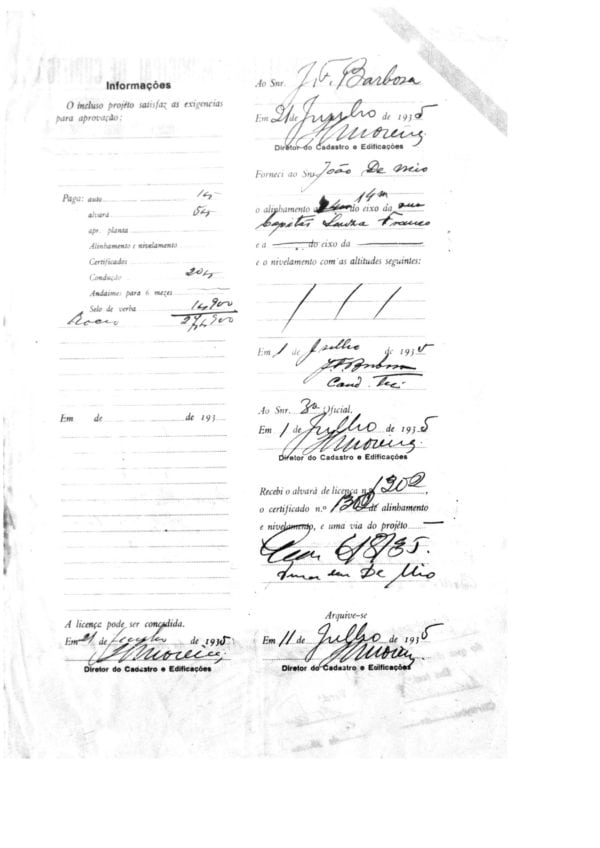 Informações
O incluso projéto satisfaz as exigencias
para aprovação:
Paga: auto
alvará
apr. planta
Alinhamento e nivelamento
Certificados
Condução 20$
Andaimes para 6 mezes
Selo de verba 1$900
27$900
Em de de 193
A licença pode ser concedida.
Em 21 de Junho de 1935
Moreira
Diretor do Cadastro e Edificações
Ao Snr. J. F. Barbosa
Em 21 de Junho de 1935
Moreira
Diretor do Cadastro e Edificações
Forneci ao Snr. João De Mio
o alinhamento a 14m do eixo da rua
Souza Franco
e a do eixo da
e o nivelamento com as altitudes seguintes:
Em 1 de Julho de 1935
J. F. Barbosa
Ao Snr. 3º Oficial.
Em 1 de Julho de 1935
Moreira
Diretor do Cadastro e Edificações
Recebi o alvará de licença n.º 1302,
o certificado n.º 1302 de alinhamento
e nivelamento, e uma via do projéto
6/8/35.
De Mio
Arquive-se
Em 11 de Julho de 1935
Moreira
Diretor do Cadastro e Edificações